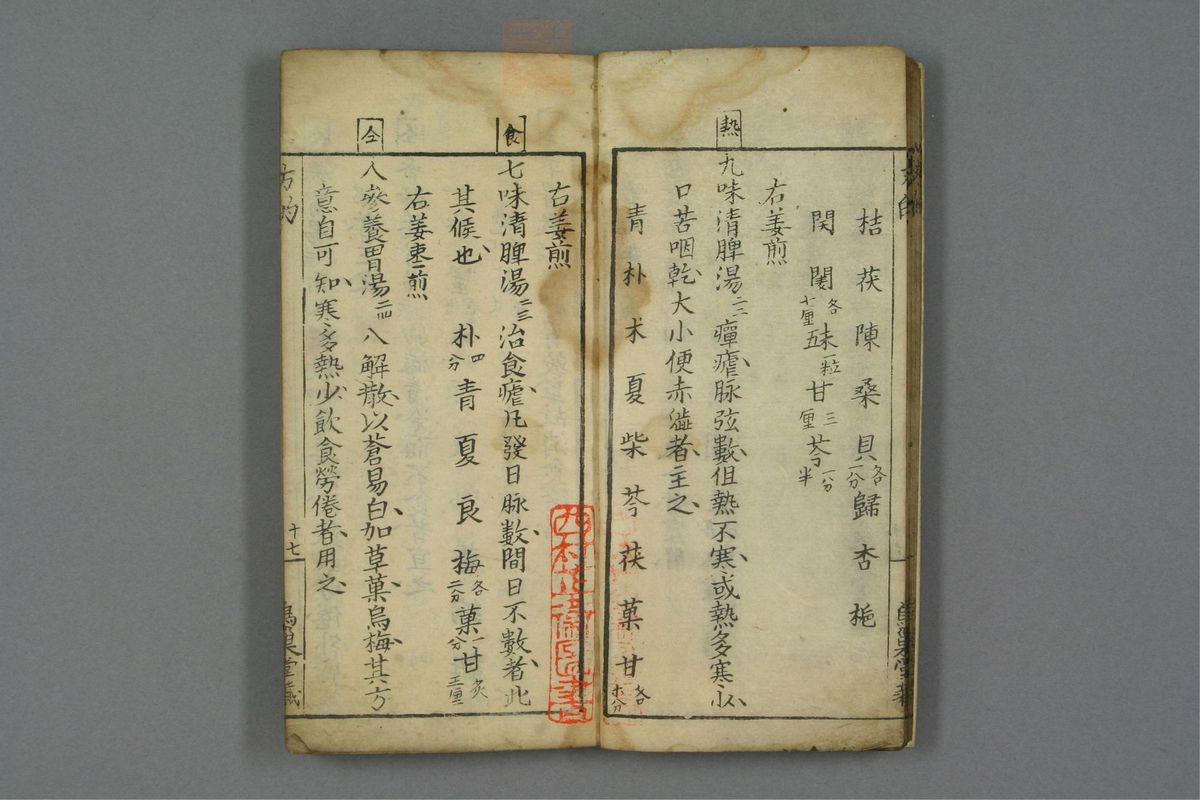 桔茯陳桑貝各二分歸杏梔
関圏各七厘五味一粒甘三厘芩一分半
右姜煎
熱
九味清脾湯二三瘅瘧脉弦數但熱不寒或熱多寒少
口苦咽乾大小便赤澁者主之
青朴朮夏柴芩茯菓甘各
右姜煎
食
七味清脾湯二三治食瘧凡發日脉數間日不數者此
其候也朴四分青夏良梅各二分菓一分甘炙三厘
右姜棗煎
仝
人參養胃湯二四八解散以蒼易白加草菓烏梅其方
意自可知寒多熱少飲食勞倦者用之
十七